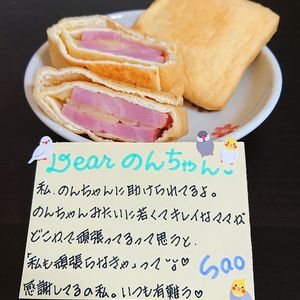 Dear のんちゃん
私、のんちゃんに助けられてるよ。
のんちゃんみたいに若くてキレイなママな
どこねで頑張ってるって思うと、
「私も頑張らなきゃ」って
感謝してるの私。いつも有難う♡
Sao